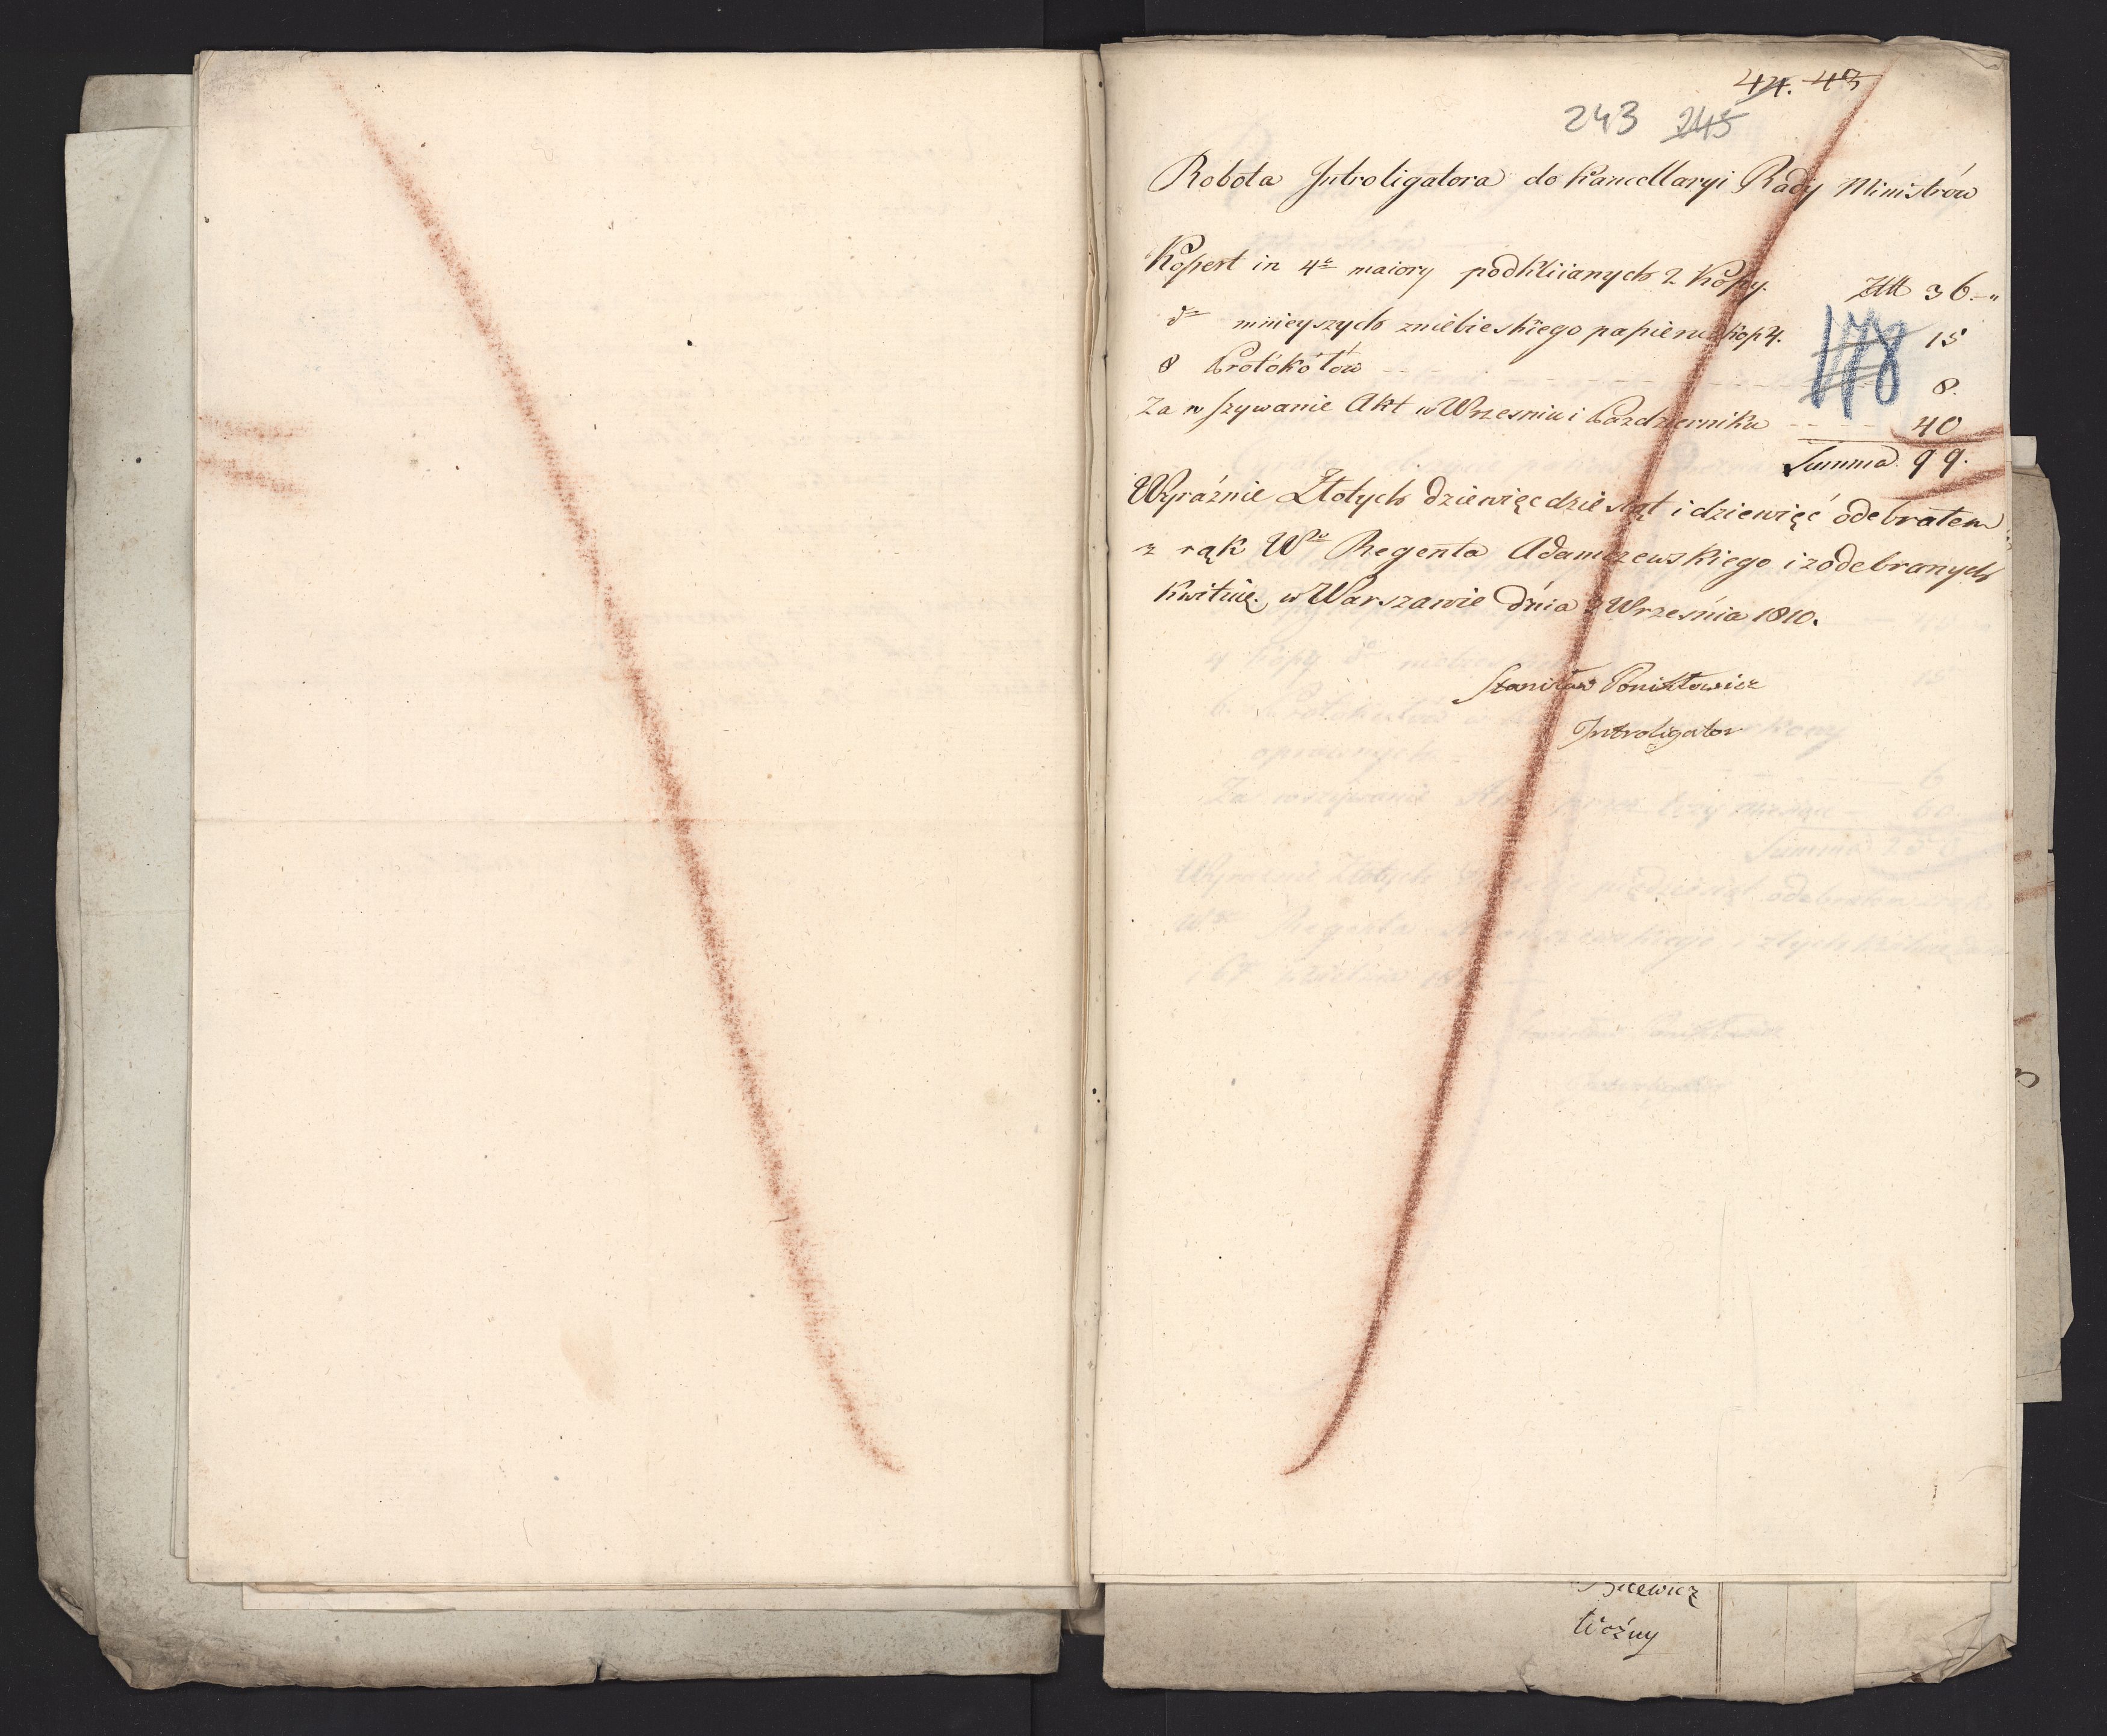 44. 43
243 245
Robota Introligatora do Kancellaryi Rady Ministrów
Kopert in 4º maiory podkliianych 2 Kopy. Złł 36.-"
dº mnieyszych zniebieskiego papieru kop 4. 15
178
8 Protókółów - - - 8.
Za w szywanie Akt w Wrzesniu i Pazdzierniku - - - - 40
Summa 99.
Wyraźnie Złotych dziewięcdziesiąt i dziewięć odebrałem
z rąk Wgo Regenta Adamczewskiego i zodebranych
kwituię. w Warszawie dnia Września 1810.
Stanisław Ponikłowicz
Introligator
Woźny